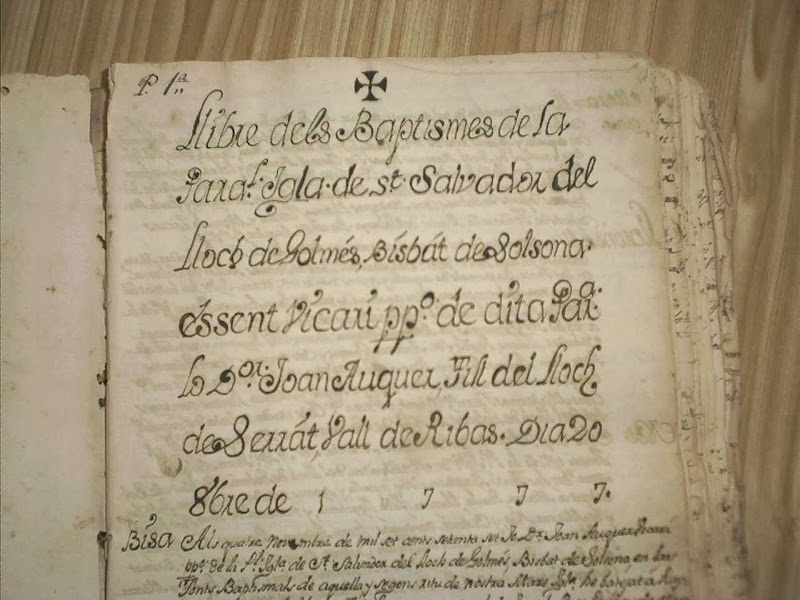 P. 1ª
Llibre dels Baptismes de la
Paral. Igla. de st. Salvador del
Lloch de Golmés, Bisbát de Solsona.
éssent Vicari ppº. de dita Parª.
lo Dor. Joan Auquer, Fill del Lloch
de Serrát, Vall de Ribas. Dia 20
8bre de 1 7 7 7.
Bisa Als quatre Novembre de mil set cents setenta set Jo Dr. Joan Auquer Vicari
ppº. de la Pl. Igla. de St. Salvador del Lloch de Golmés, Bisbat de Solsona en las
Fonts Baptismals de aquella y segons ritu de nostra Mare Igla. he batejat a